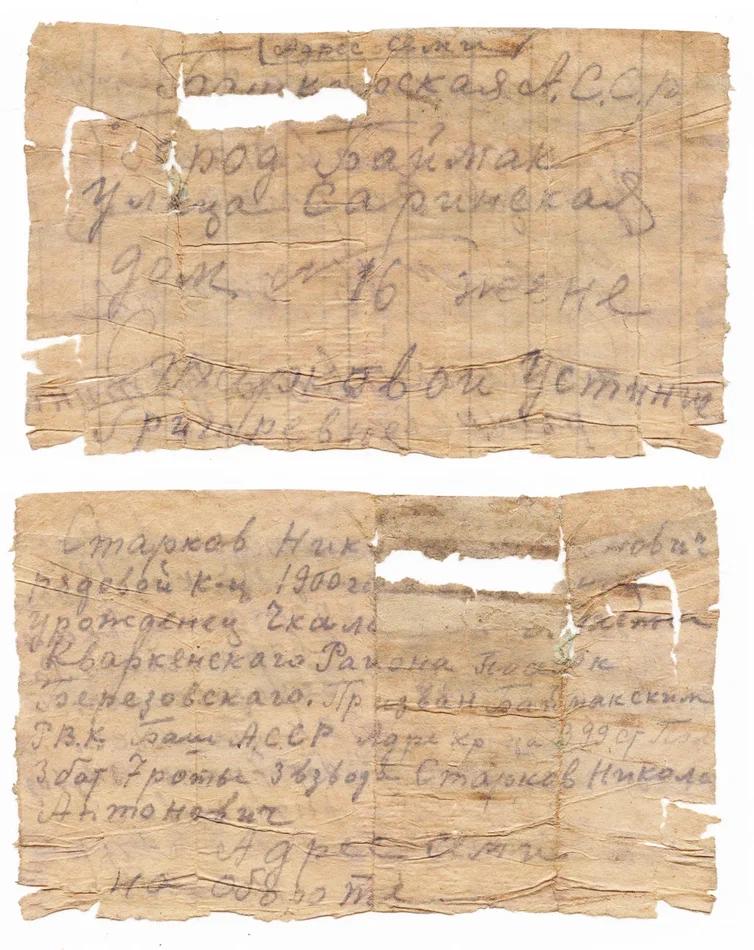 Адрес Семи
Башкирская А.С.С.р
Город Баймак
Улица Саринская
дом № 16 жене
Старковой Устинии
Григоревне
Старков Ник новичь
рядовой к-ц 1900г
Урожденец Чкало области
Кваркенскаго Раиона Посёлк
Березовскаго. Призван Баймакским
Р.В.К. Баш А.ССР Адре 399
3 бат 7 роты 3 взвода Старков Никола
Антонович
Адрес Семи
на обороте